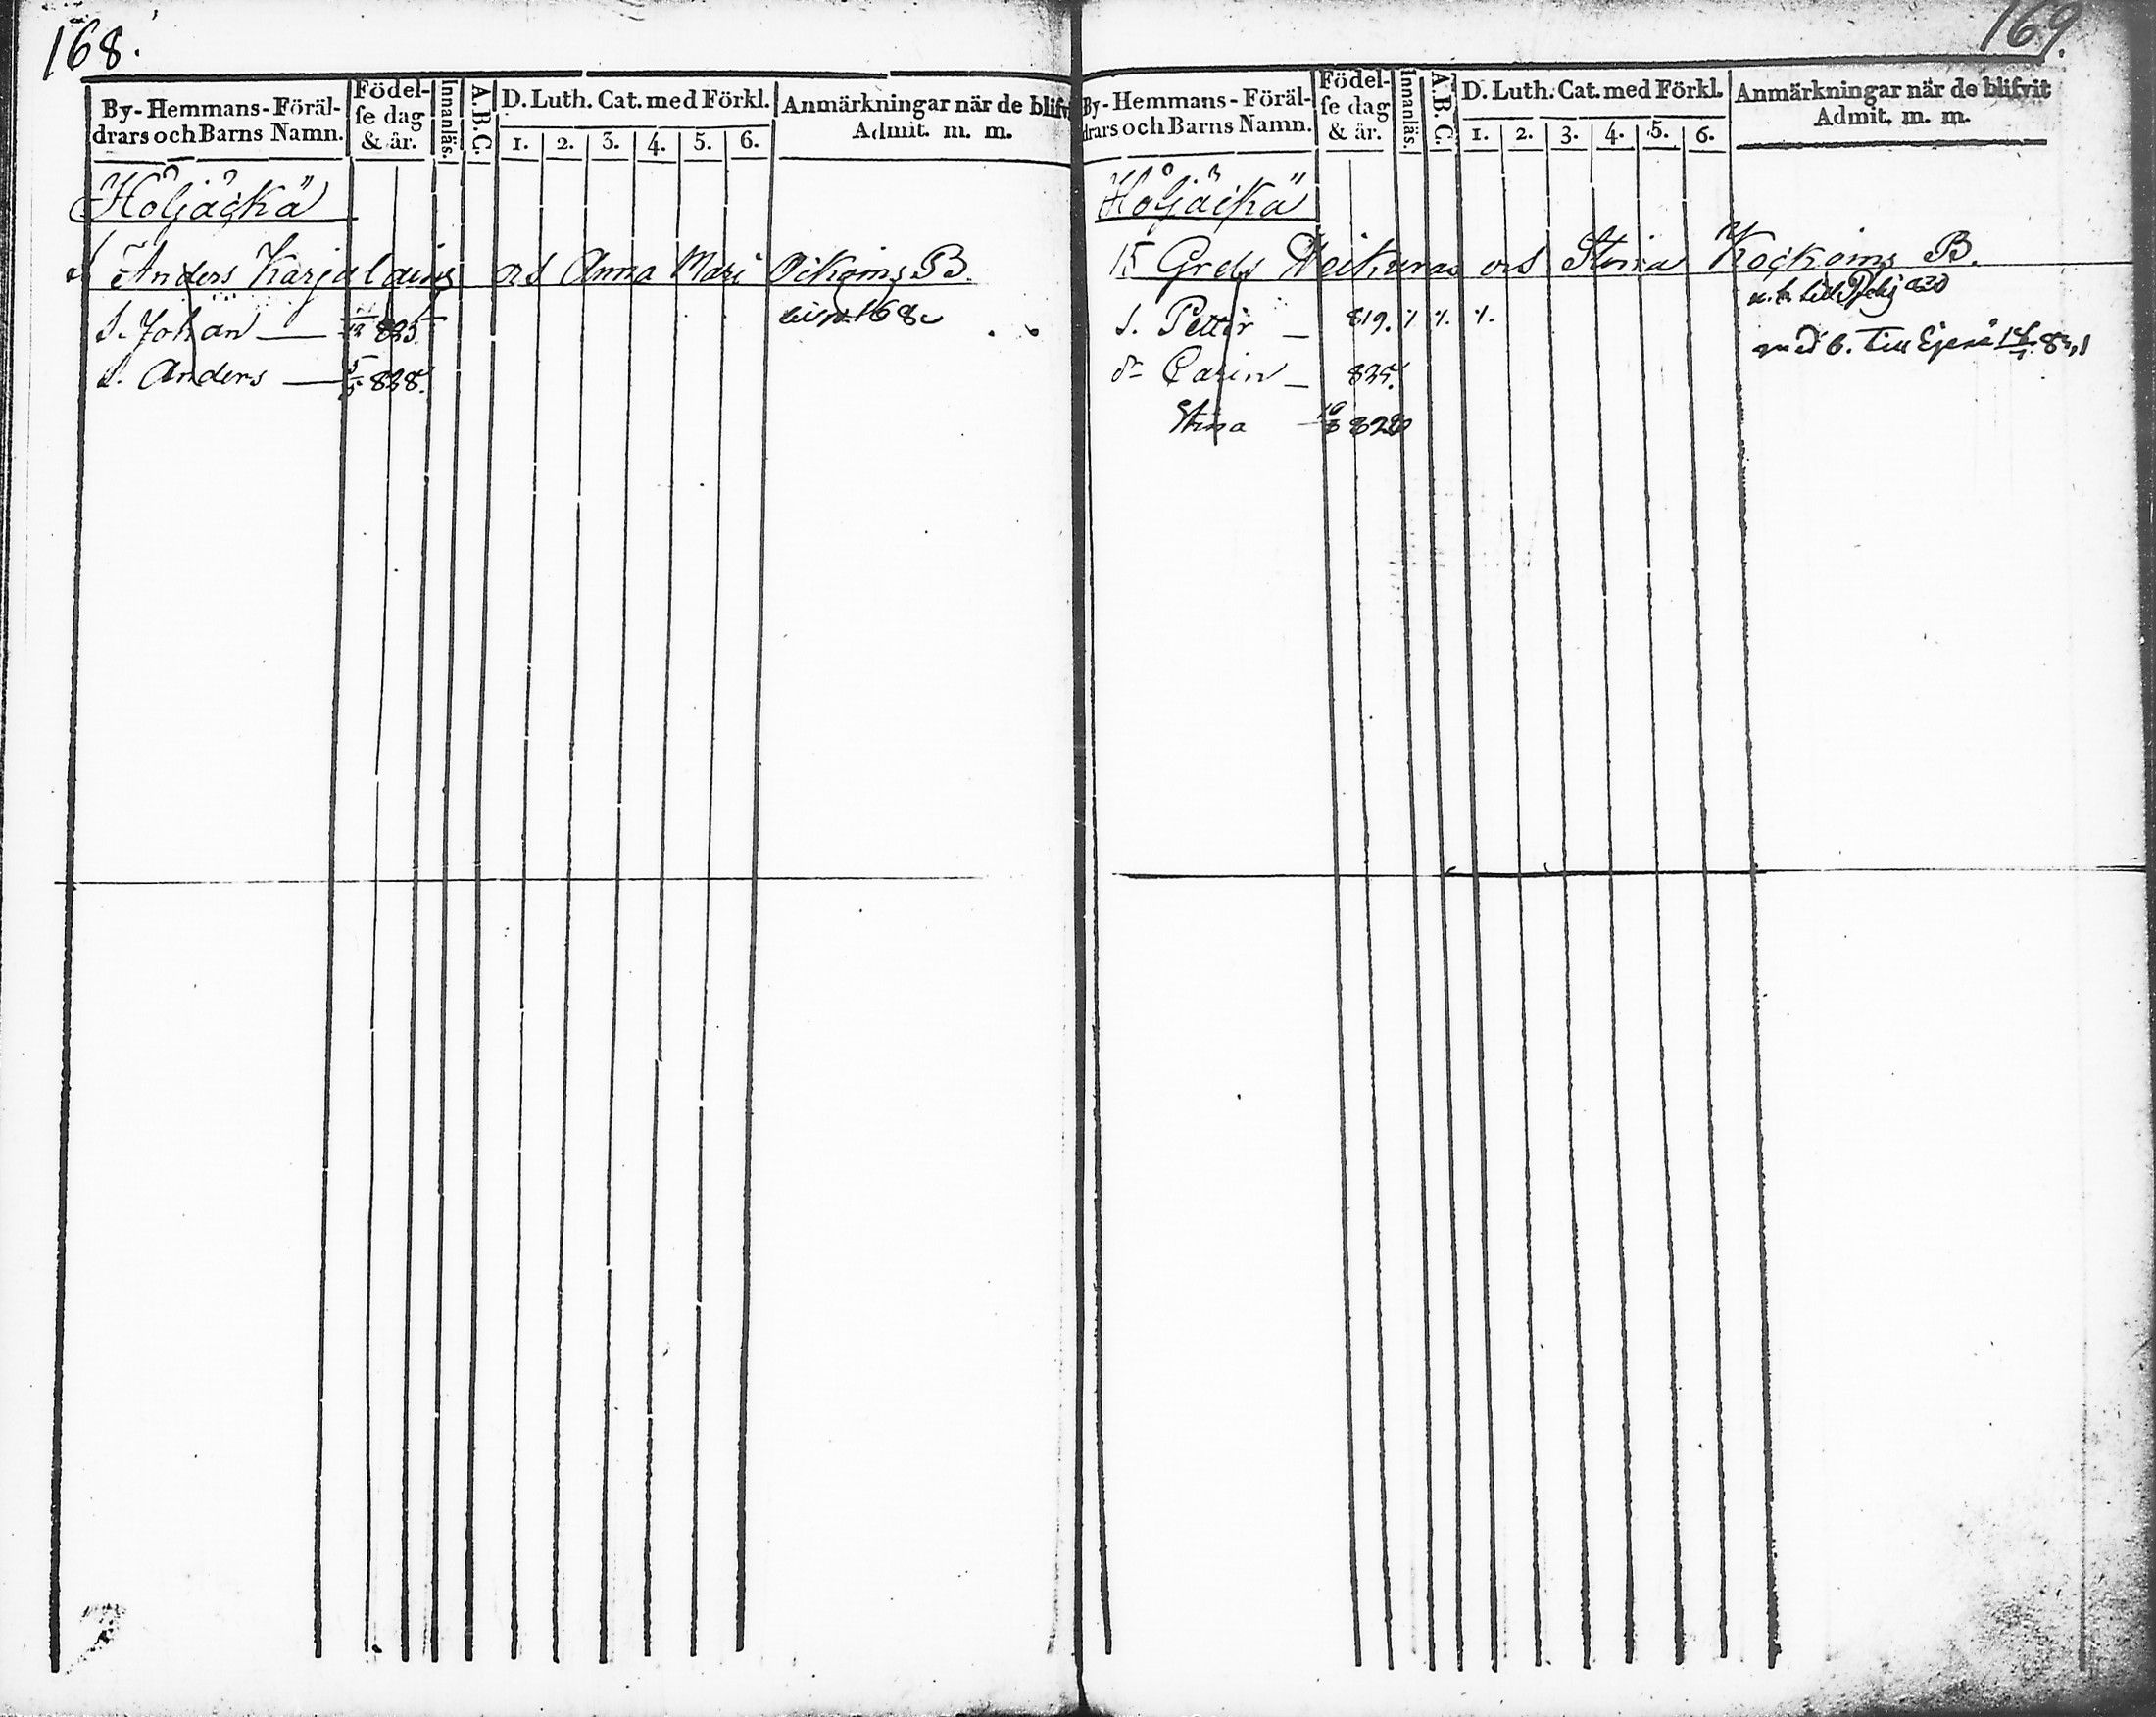 168.
By-Hemmans-Föräl-
drars och Barns Namn.
Födel-
se dag
& år.
Innanläs.
A.B.C.
D. Luth. Cat. med Förkl.
1. 2. 3. 4. 5. 6.
Anmärkningar när de blifv
Admit. m. m.
Höljäckä
Anders Karjalains o.s Anna Mari Oikoins B.
168
S. Johan — 825
S. Anders — 828.
169.
By-Hemmans-Föräl-
drars och Barns Namn.
Födel-
se dag
& år.
Innanläs.
A.B.C.
D. Luth. Cat. med Förkl.
1. 2. 3. 4. 5. 6.
Anmärkningar när de blifvit
Admit. m. m.
Höljäckä
15 Grels o.s Stina Kockoins B.
S. Petter — 819.
med B. till
dr Carin — 825.
Stina — 828